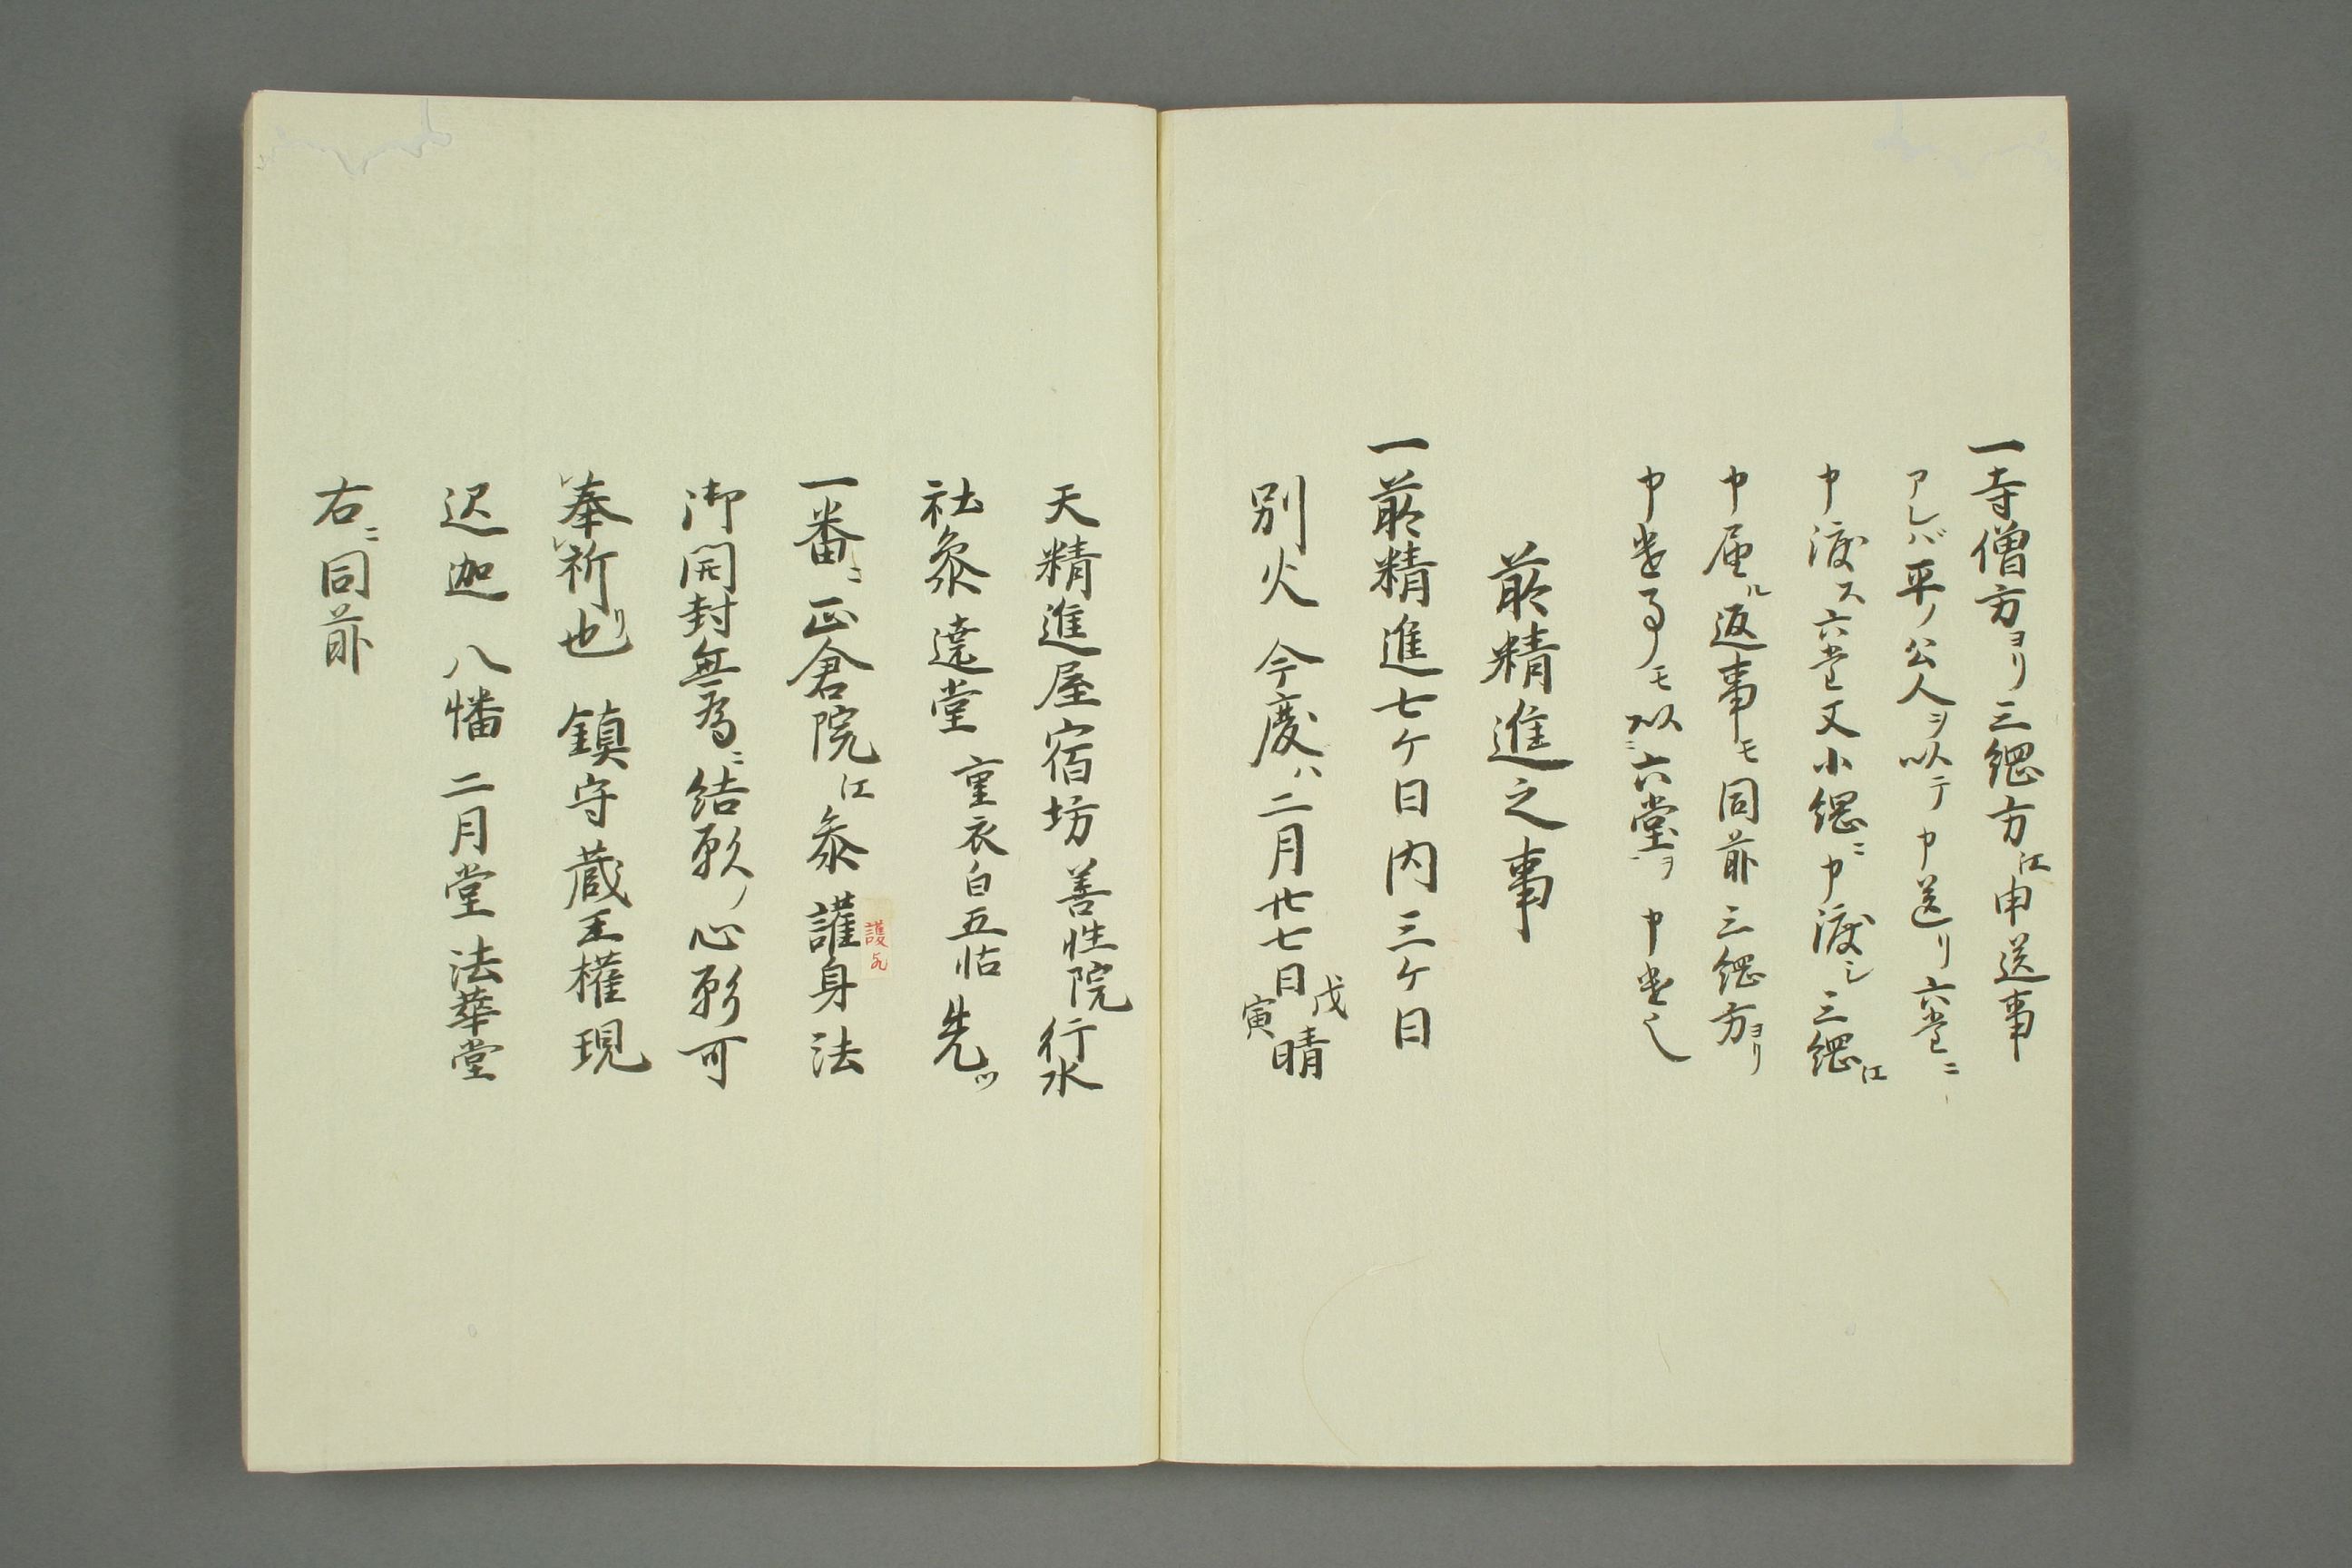 一寺僧方ヨリ三綱方江申送事
アレバ平ノ公人ヲ以テ申送リ六堂ニ
申渡ス六堂又小綱ニ申渡シ三綱江
申届ル返事モ同前三綱方ヨリ
申遣事モ以ニ六堂ヲ申遣之
前精進之事
一前精進七ケ日内三ケ日
別火 今度ハ二月廿七日戊寅晴
天精進屋宿坊善性院行水
社参 達堂 重衣白五帖 先ツ
一番ニ正倉院江参 護身法
護歟
御開封無為ニ結願ノ心願可
奉祈リ也 鎮守蔵王権現
迟迦 八幡 二月堂 法華堂
右ニ同前